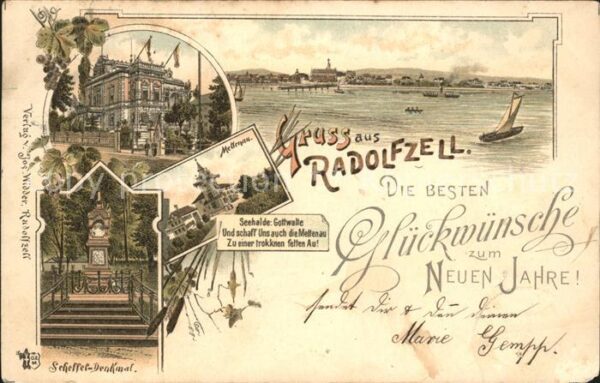 Gruss aus
RADOLFZELL.
DIE BESTEN
Glückwünsche
zum
NEUEN JAHRE!
sendet Dir & den deinen
Marie Gempp.
Mettnau.
Seehalde: Gottwalte
Und schaff Uns auch die Mettnau
Zu einer trokknen fetten Au!
Verlag v. Jos. Widder, Radolfzell
Scheffel-Denkmal.